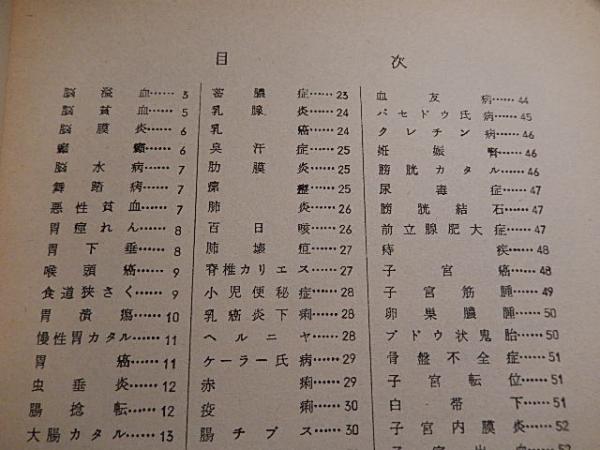 目次
脳溢血……3
脳貧血……5
脳膜炎……6
癲癇……6
脳水病……7
舞踏病……7
悪性貧血……7
胃痙れん……8
胃下垂……8
喉頭癌……9
食道狭さく……9
胃潰瘍……10
慢性胃カタル……11
胃癌……11
虫垂炎……12
腸捻転……12
大腸カタル……13
蓄膿症……23
乳腺炎……24
乳癌……24
臭汗症……25
肋膜炎……25
瘰癧……25
肺炎……26
百日咳……26
肺壊疽……27
脊椎カリエス……27
小児便秘症……28
乳癌炎下痢……28
ヘルニヤ……28
ケーラー氏病……29
赤痢……29
疫痢……30
腸チブス……30
血友病……44
バセドウ氏病……45
クレチン病……46
妊娠腎……46
膀胱カタル……46
尿毒症……47
膀胱結石……47
前立腺肥大症……47
痔疾……48
子宮癌……48
子宮筋腫……49
卵巣膿腫……50
ブドウ状鬼胎……50
骨盤不全症……51
子宮転位……51
白帯下……51
子宮内膜炎……52